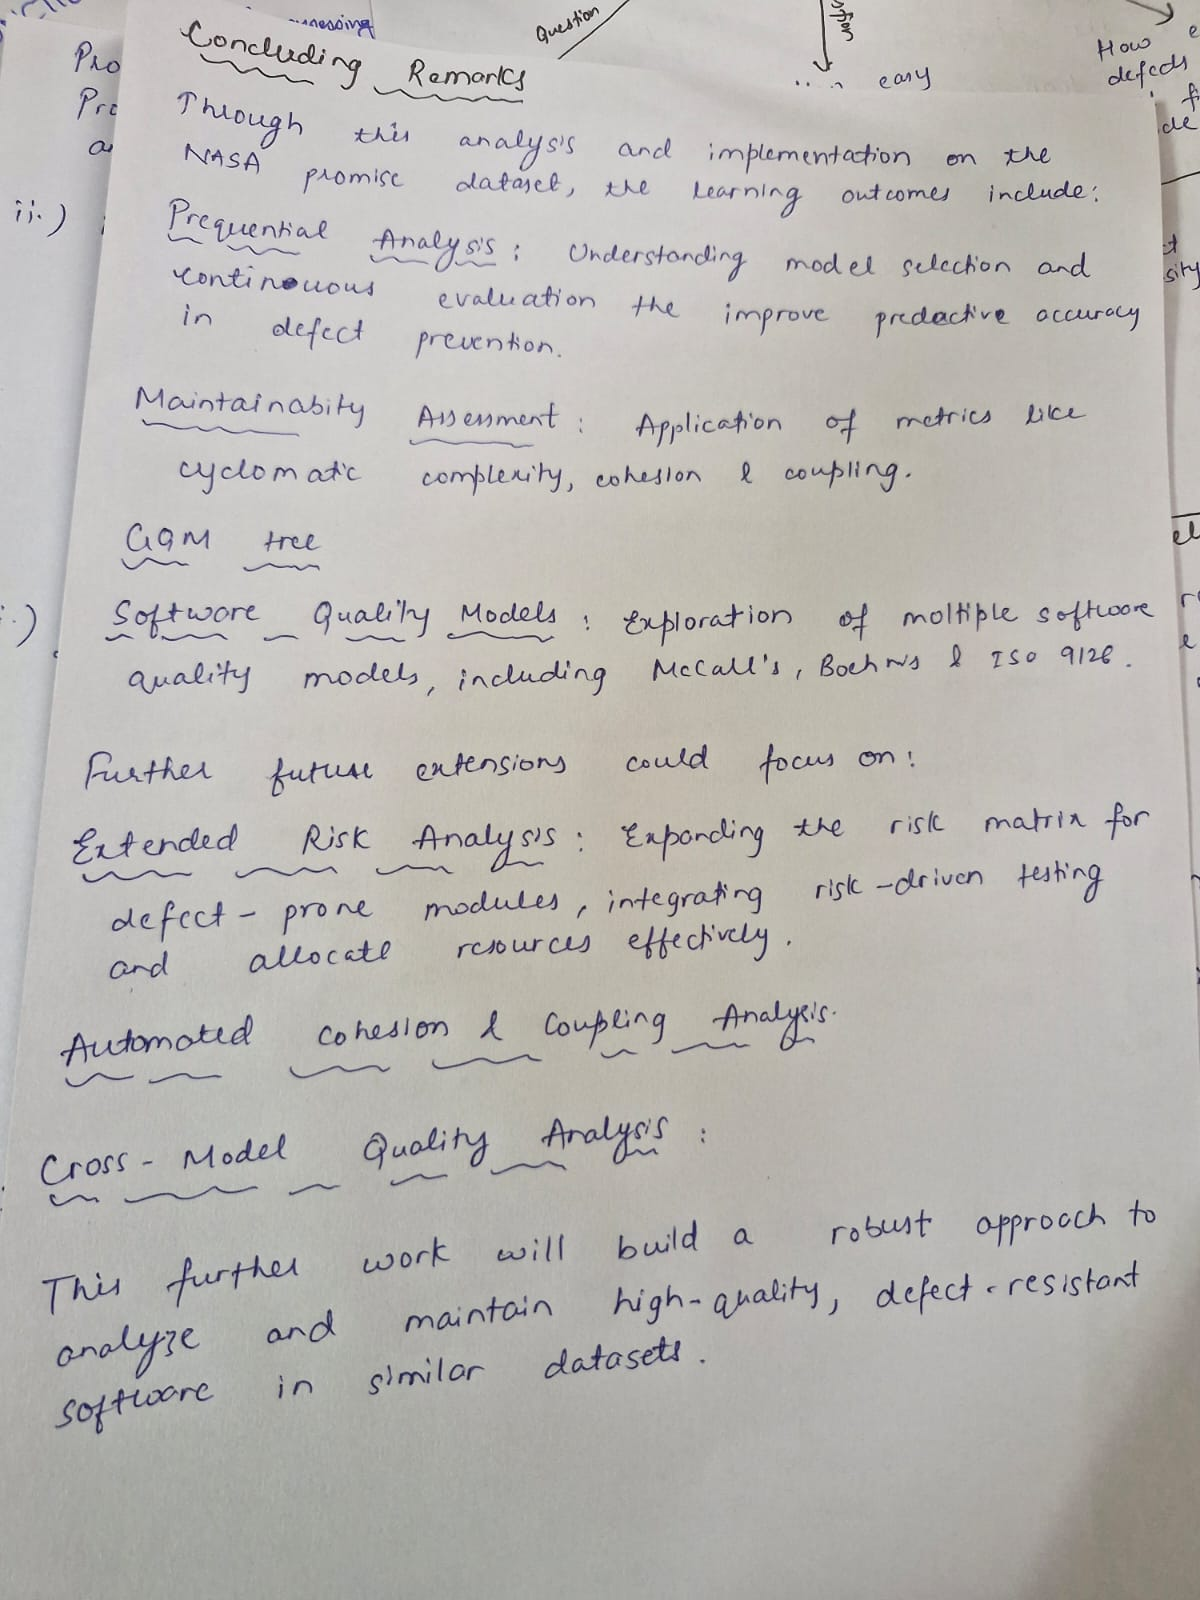 essing
Question
How e
defects
easy
Pro
Pro
ii.)
Concluding Remarks
Through this analysis and implementation on the
NASA promise dataset, the learning outcomes include:
Prequential Analysis: Understanding model selection and
continuous evaluation the improve predective accuracy
in defect prevention.
Maintainabity Assessment: Application of metrics like
cyclomatic complexity, cohesion & coupling.
GQM tree
Software Quality Models: Exploration of moltiple software
quality models, including McCall's, Boehm's & ISO 9126.
Further future extensions could focus on:
Extended Risk Analysis: Expanding the risk matrix for
defect-prone modules, integrating risk-driven testing
and allocate resources effectively.
Automated cohesion & Coupling Analysis.
Cross-Model Quality Analysis:
This further work will build a robust approach to
analyze and maintain high-quality, defect-resistant
software in similar datasets.